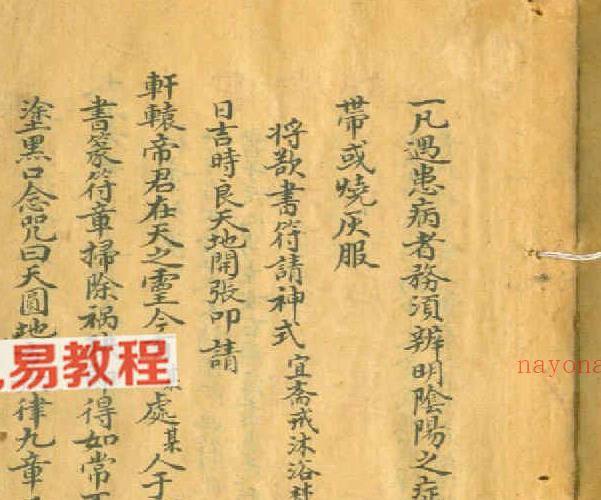 一凡遇患病者務須辨明陰陽之症
帶或燒灰服
将欲書符請神式 宜斋戒沐浴
日吉時良天地開張叩請
軒轅帝君在天之靈今 處某人于
書篆符章掃除禍 得如常
塗黑口念咒曰天圓地 律九章
易教程
nayona